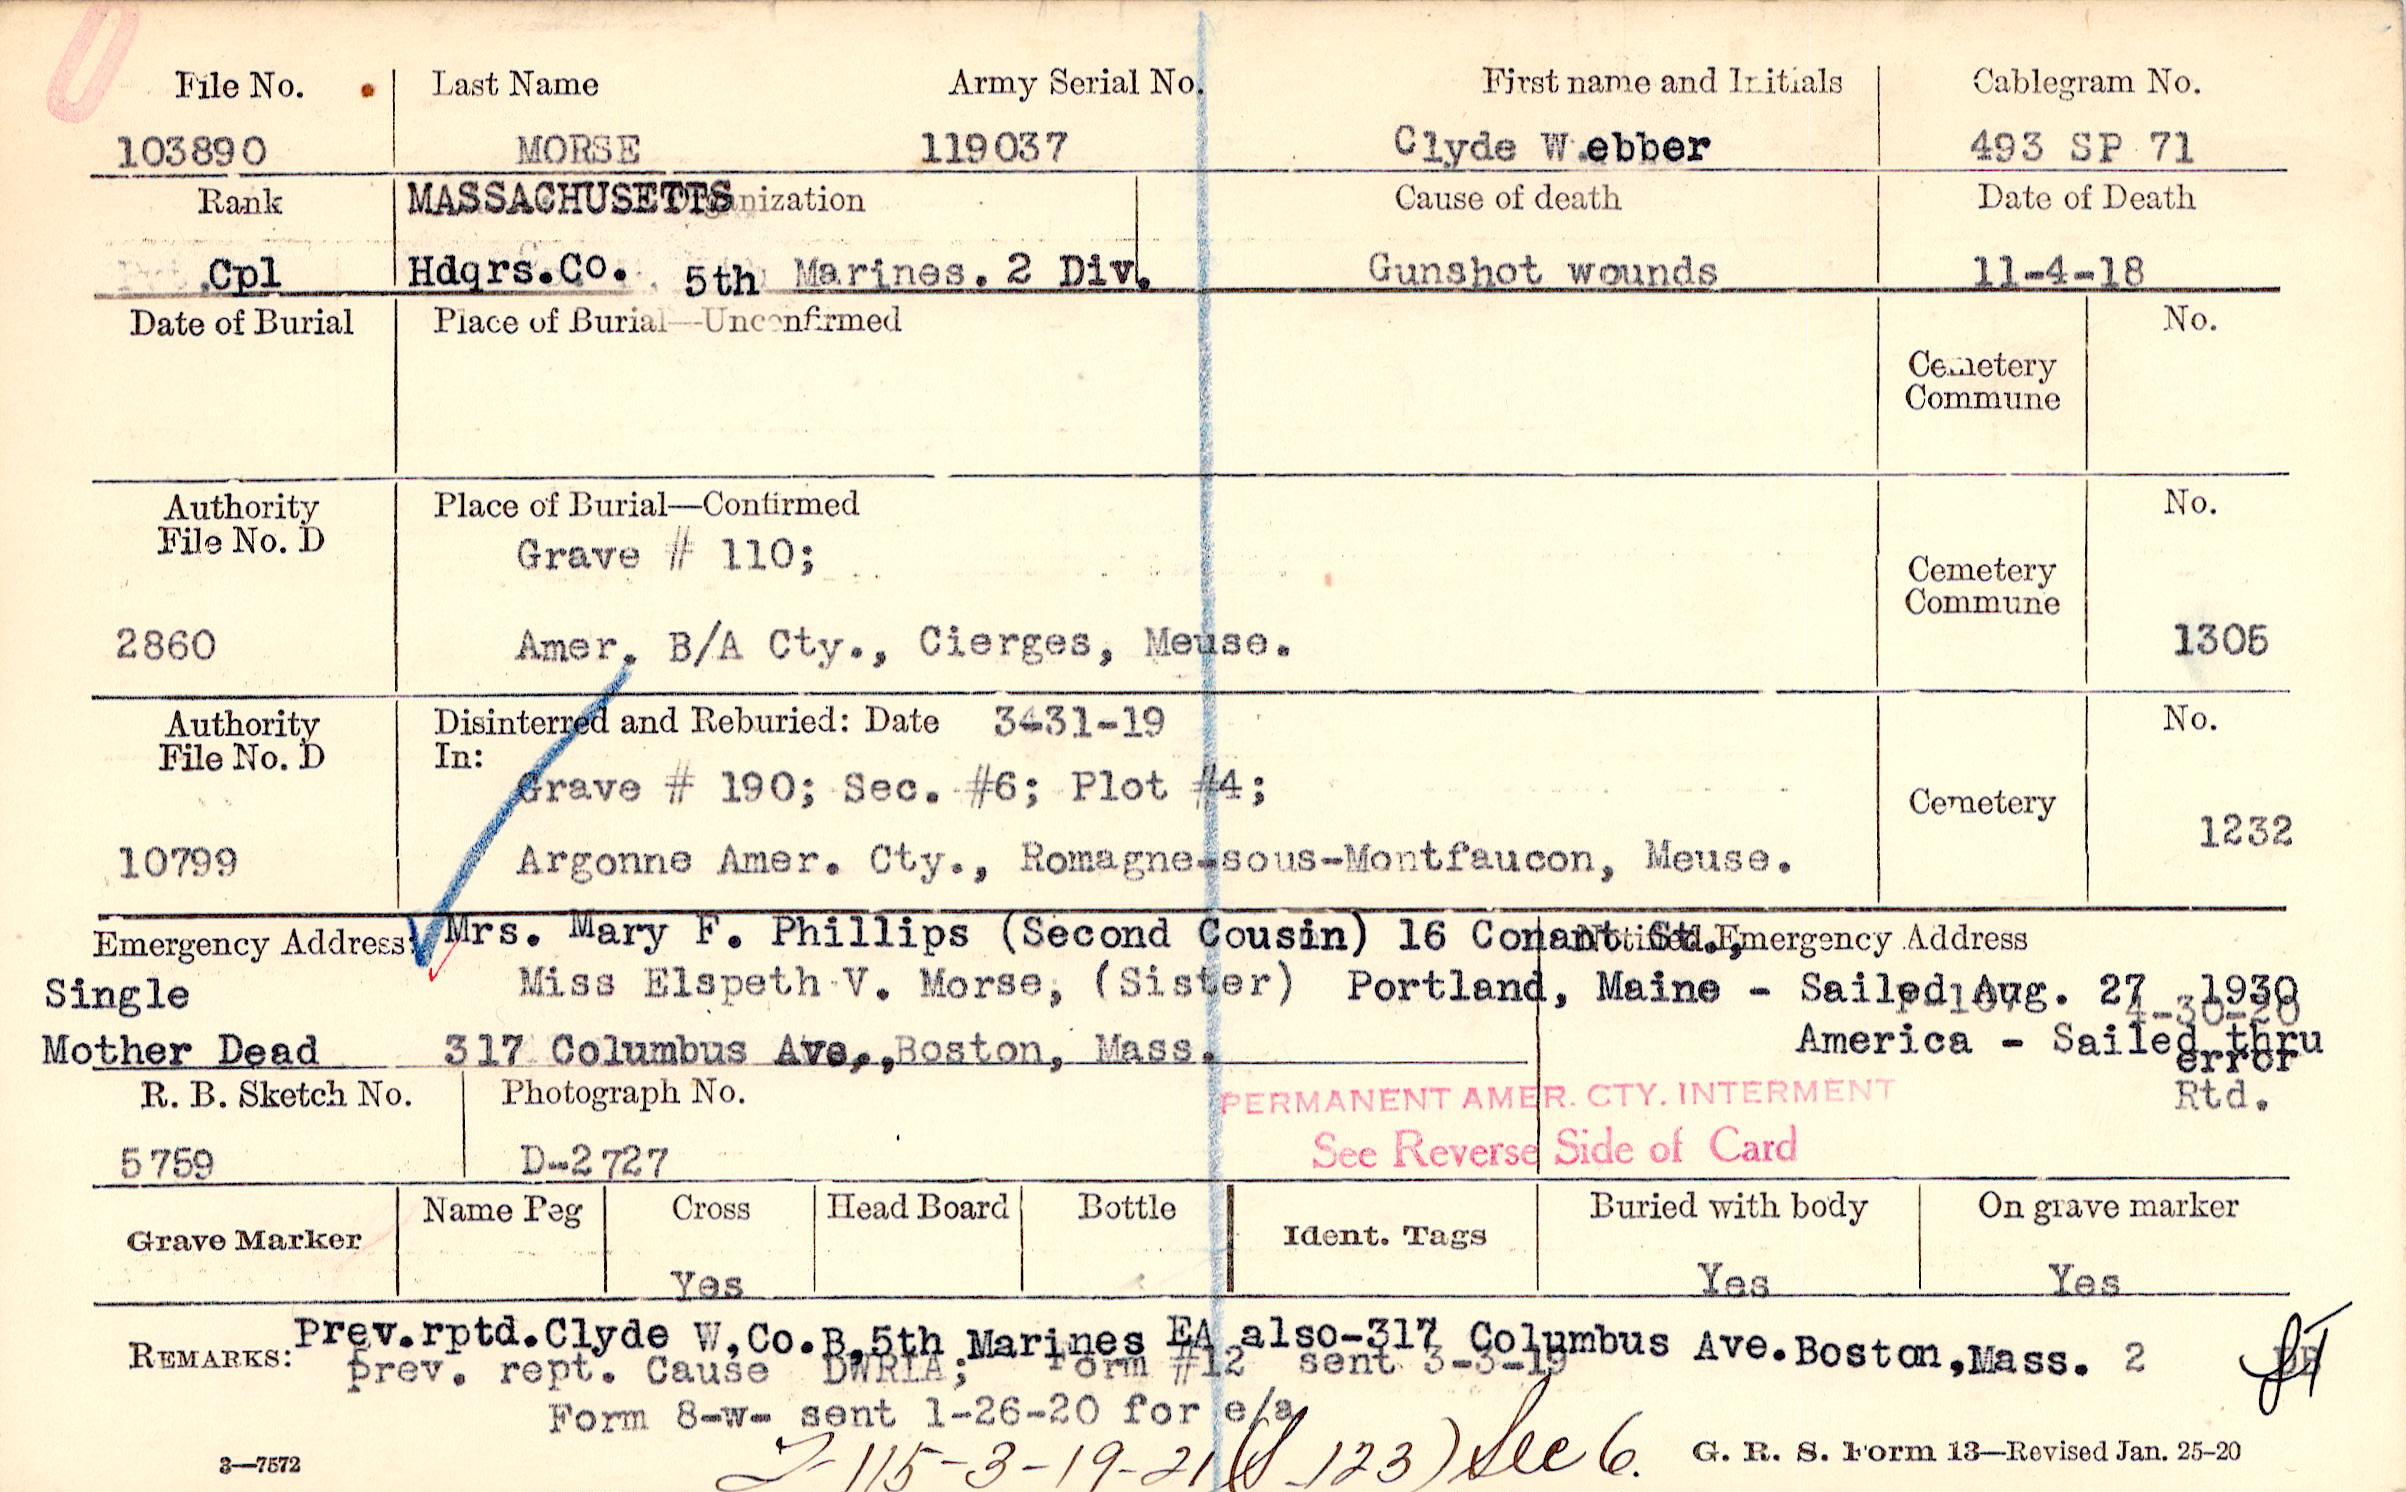 File No. Last Name Army Serial No. First name and Initials Cablegram No.
103890 MORSE 119037 Clyde W.ebber 493 SP 71
Rank MASSACHUSETTS Cause of death Date of Death
Cpl Hdqrs.Co. 5th Marines. 2 Div. Gunshot wounds 11-4-18
Date of Burial Place of Burial—Unconfirmed No.
Cemetery
Commune
Authority Place of Burial—Confirmed No.
File No. D
Grave # 110;
Cemetery
Commune
2860 Amer. B/A Cty., Cierges, Meuse. 1305
Authority Disinterred and Reburied: Date 3-31-19 No.
File No. D In:
Grave # 190; Sec. #6; Plot #4;
Cemetery
1232
10799 Argonne Amer. Cty., Romagne-sous-Montfaucon, Meuse.
Emergency Address: Mrs. Mary F. Phillips (Second Cousin) 16 Conant St., Notified Emergency Address
Single Miss Elspeth V. Morse, (Sister) Portland, Maine - Sailed Aug. 27 1930
4-30-20
Mother Dead 317 Columbus Ave., Boston, Mass. America - Sailed thru
error
R. B. Sketch No. Photograph No. PERMANENT AMER. CTY. INTERMENT Rtd.
See Reverse Side of Card
5759 D-2727
Grave Marker Name Peg Cross Head Board Bottle Ident. Tags Buried with body On grave marker
Yes Yes Yes
REMARKS: Prev.rptd.Clyde W.Co.B.5th Marines EA also-317 Columbus Ave.Boston,Mass. 2
prev. rept. Cause DWRIA; Form #12 sent 3-3-19
Form 8-w- sent 1-26-20 for e/a
115-3-19-21 (S-123) Sec 6.
3—7572 G. R. S. Form 13—Revised Jan. 25-20